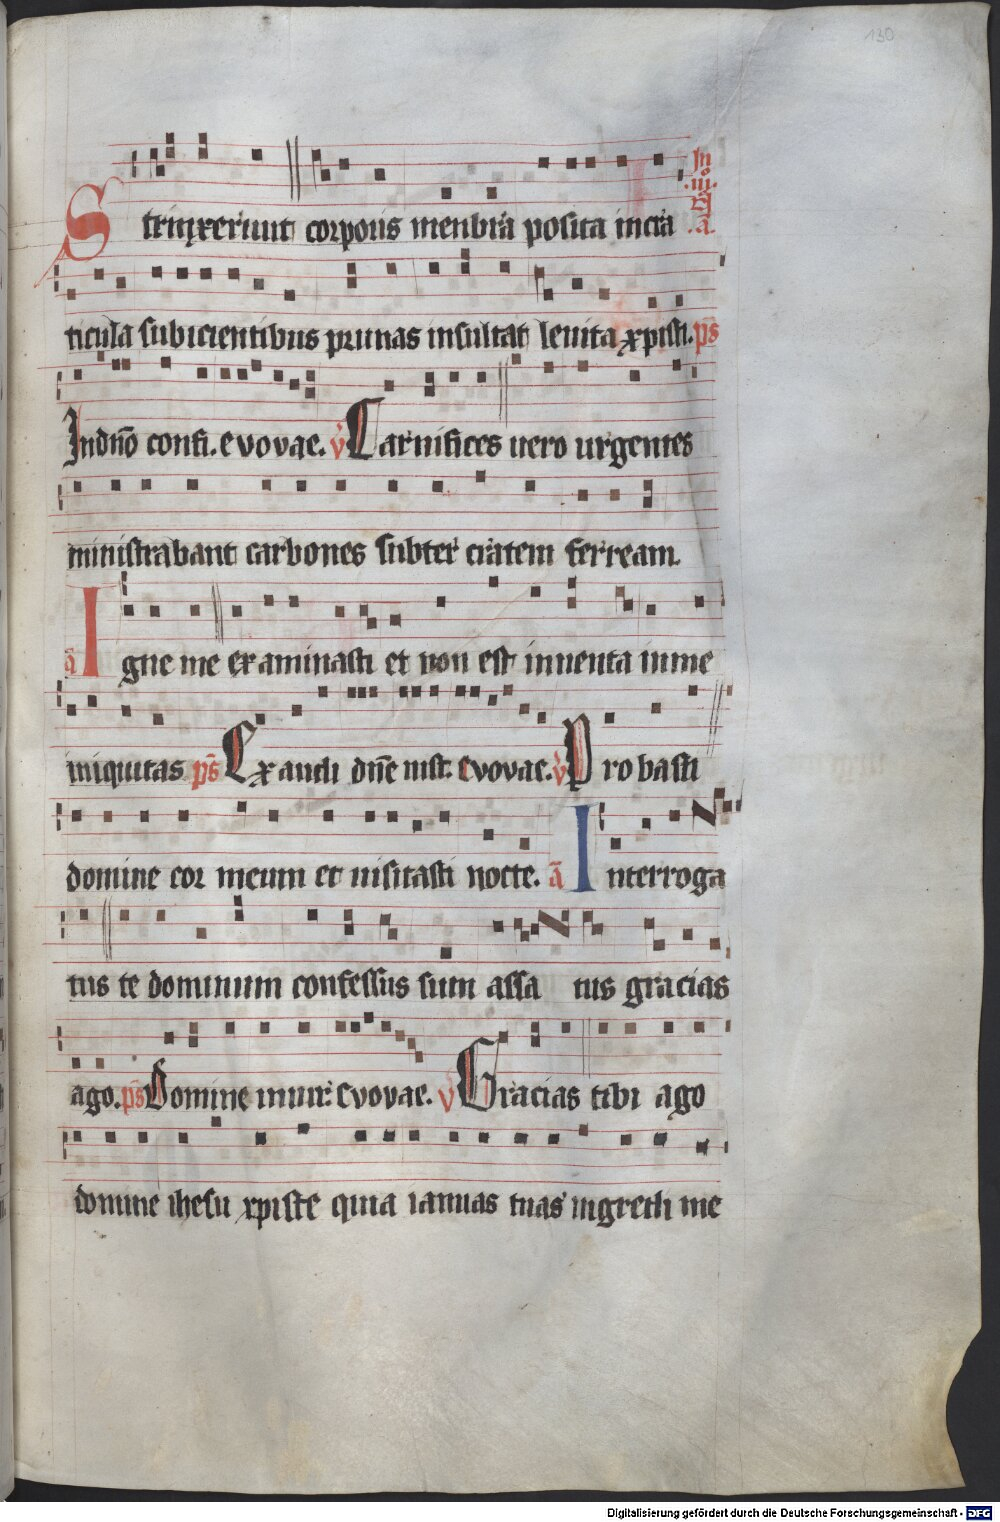 130
Strinxerunt corporis menbra posita incra
In
.iii.
a.
ticula subicientibus prunas insultat leuita xpisti. ps
Indno confi. evovae. v Carnifices uero urgentes
ministrabant carbones subter cratem ferream.
a Igne me examinasti et non est inuenta inme
iniquitas ps Exaudi dne iust. evovae. v Probasti
domine cor meum et uisitasti nocte. a Interroga
tus te dominum confessus sum assa tus gracias
ago. ps Domine in uir: evovae. v Gracias tibi ago
domine ihesu xpiste quia ianuas tuas ingredi me
Digitalisierung gefördert durch die Deutsche Forschungsgemeinschaft - DFG